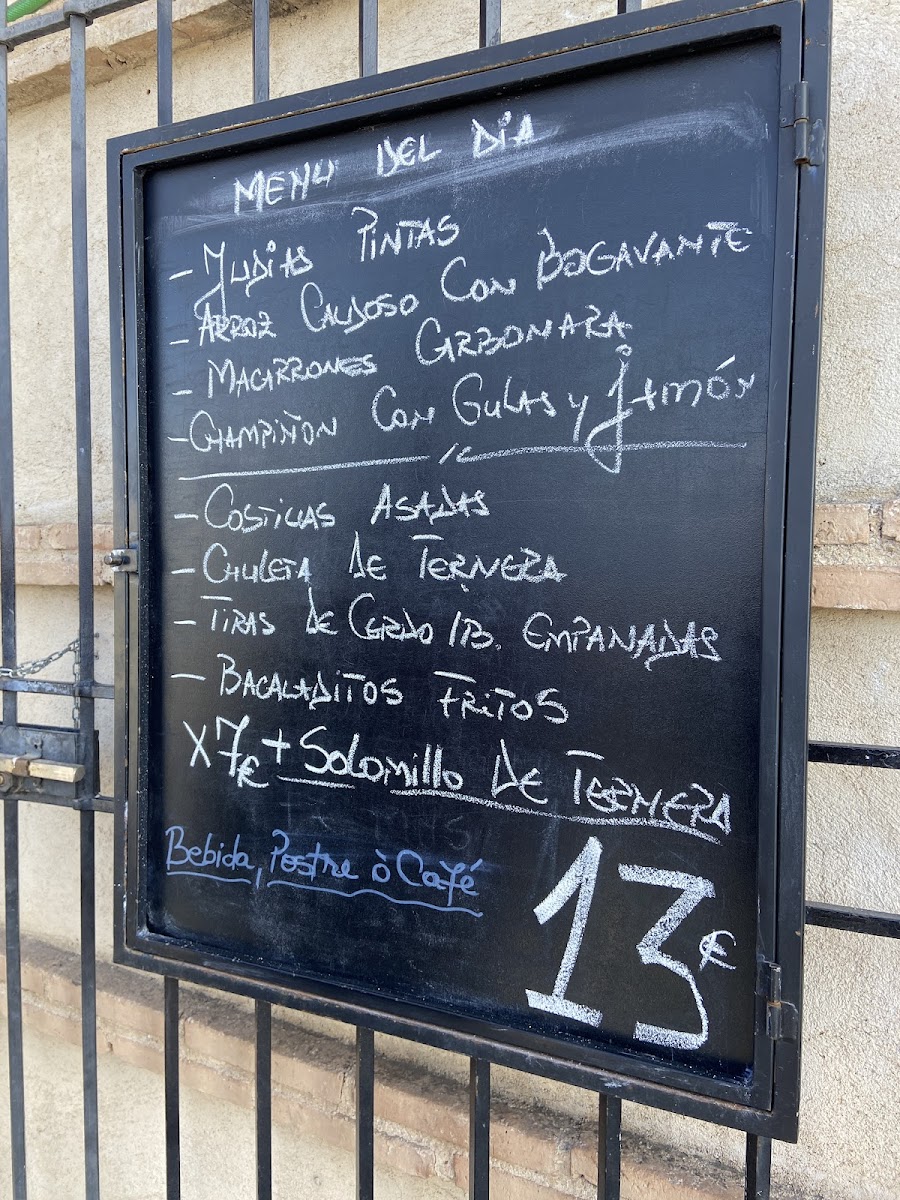 MENU DEL DIA
- JUDIAS PINTAS
- ARROZ CALDOSO CON BOGAVANTE
- MACARRONES CARBONARA
- CHAMPIÑON CON GULAS y JAMÓN
- COSTILLAS ASADAS
- CHULETA DE TERNERA
- TIRAS DE CERDO IB. EMPANADAS
- BACALADITOS FRITOS
X 7€ + Solomillo DE TERNERA
Bebida, Postre ò Café
13€